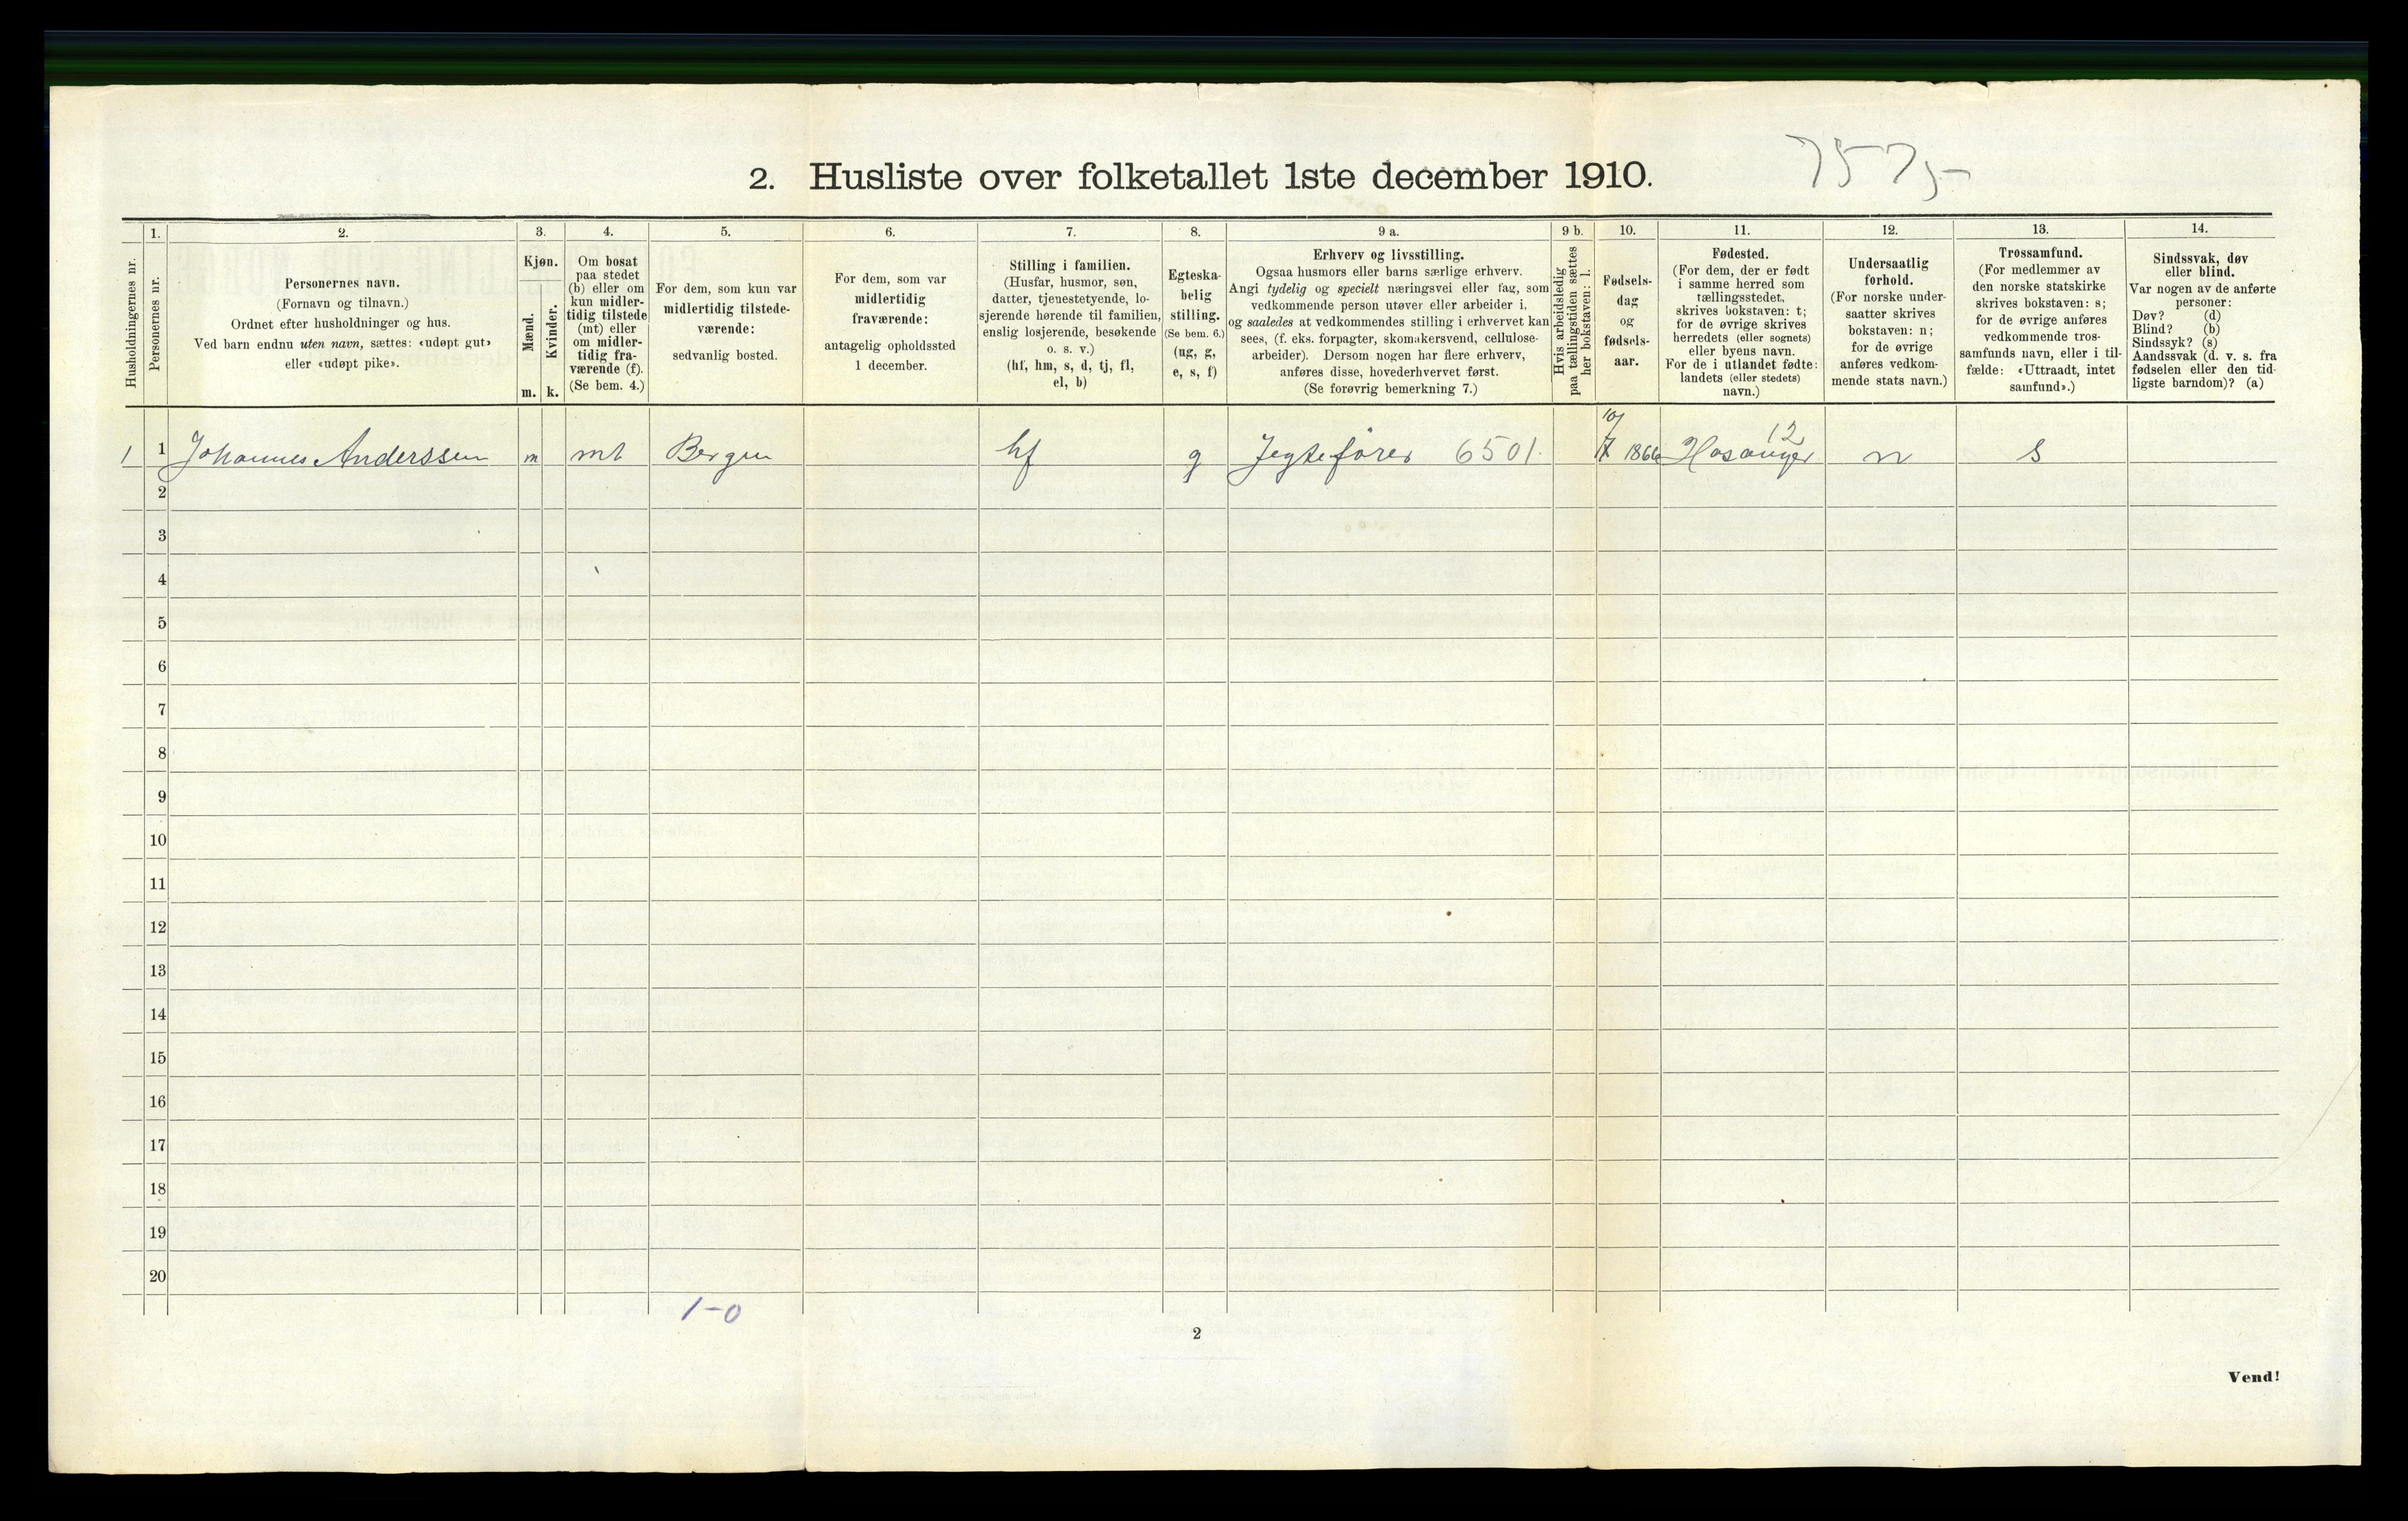 7575-
2. Husliste over folketallet 1ste december 1910.
Husholdningernes nr.
1.
Personernes nr.
2.
Personernes navn.
(Fornavn og tilnavn.)
Ordnet efter husholdninger og hus.
Ved barn endnu uten navn, sættes: «udøpt gut»
eller «udøpt pike».
3.
Kjøn.
Mænd.
Kvinder.
m. k.
4.
Om bosat
paa stedet
(b) eller om
kun midler-
tidig tilstede
(mt) eller
om midler-
tidig fra-
værende (f).
(Se bem. 4.)
5.
For dem, som kun var
midlertidig tilstede-
værende:
sedvanlig bosted.
6.
For dem, som var
midlertidig
fraværende:
antagelig opholdssted
1 december.
7.
Stilling i familien.
(Husfar, husmor, søn,
datter, tjenestetyende, lo-
sjerende hørende til familien,
enslig losjerende, besøkende
o. s. v.)
(hf, hm, s, d, tj, fl,
el, b)
8.
Egteska-
belig
stilling.
(Se bem. 6.)
(ug, g,
e, s, f)
9 a.
Erhverv og livsstilling.
Ogsaa husmors eller barns særlige erhverv.
Angi tydelig og specielt næringsvei eller fag, som
vedkommende person utøver eller arbeider i,
og saaledes at vedkommendes stilling i erhvervet kan
sees, (f. eks. forpagter, skomakersvend, cellulose-
arbeider). Dersom nogen har flere erhverv,
anføres disse, hovederhvervet først.
(Se forøvrig bemerkning 7.)
9 b.
Hvis arbeidsledig
paa tællingstiden sættes
her bokstaven: l.
10.
Fødsels-
dag
og
fødsels-
aar.
11.
Fødested.
(For dem, der er født
i samme herred som
tællingsstedet,
skrives bokstaven: t;
for de øvrige skrives
herredets (eller sognets)
eller byens navn.
For de i utlandet fødte:
landets (eller stedets)
navn.)
12.
Undersaatlig
forhold.
(For norske under-
saatter skrives
bokstaven: n;
for de øvrige
anføres vedkom-
mende stats navn.)
13.
Trossamfund.
(For medlemmer av
den norske statskirke
skrives bokstaven: s;
for de øvrige anføres
vedkommende tros-
samfunds navn, eller i til-
fælde: «Uttraadt, intet
samfund».)
14.
Sindssvak, døv
eller blind.
Var nogen av de anførte
personer:
Døv? (d)
Blind? (b)
Sindssyk? (s)
Aandssvak (d. v. s. fra
fødselen eller den tid-
ligste barndom)? (a)
1 1 Johannes Anderssen m mt Bergen hf g Jegtefører 6501. 10/7 1866 Hosanger 12 n s
2
3
4
5
6
7
8
9
10
11
12
13
14
15
16
17
18
19
20
1-0
2
Vend!